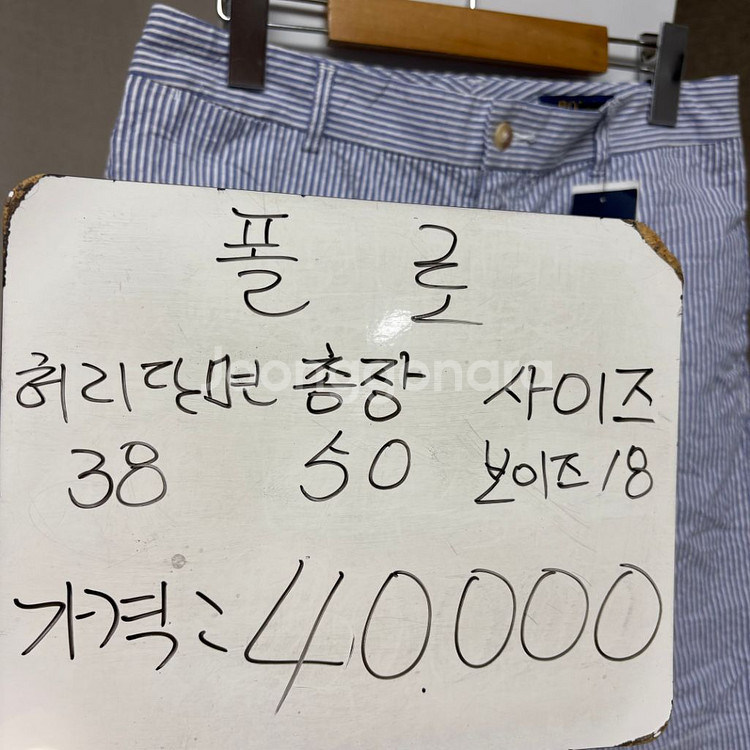 폴로
허리단면 총장 사이즈
38 50 보이즈18
가격: 40.000
Joonggonara